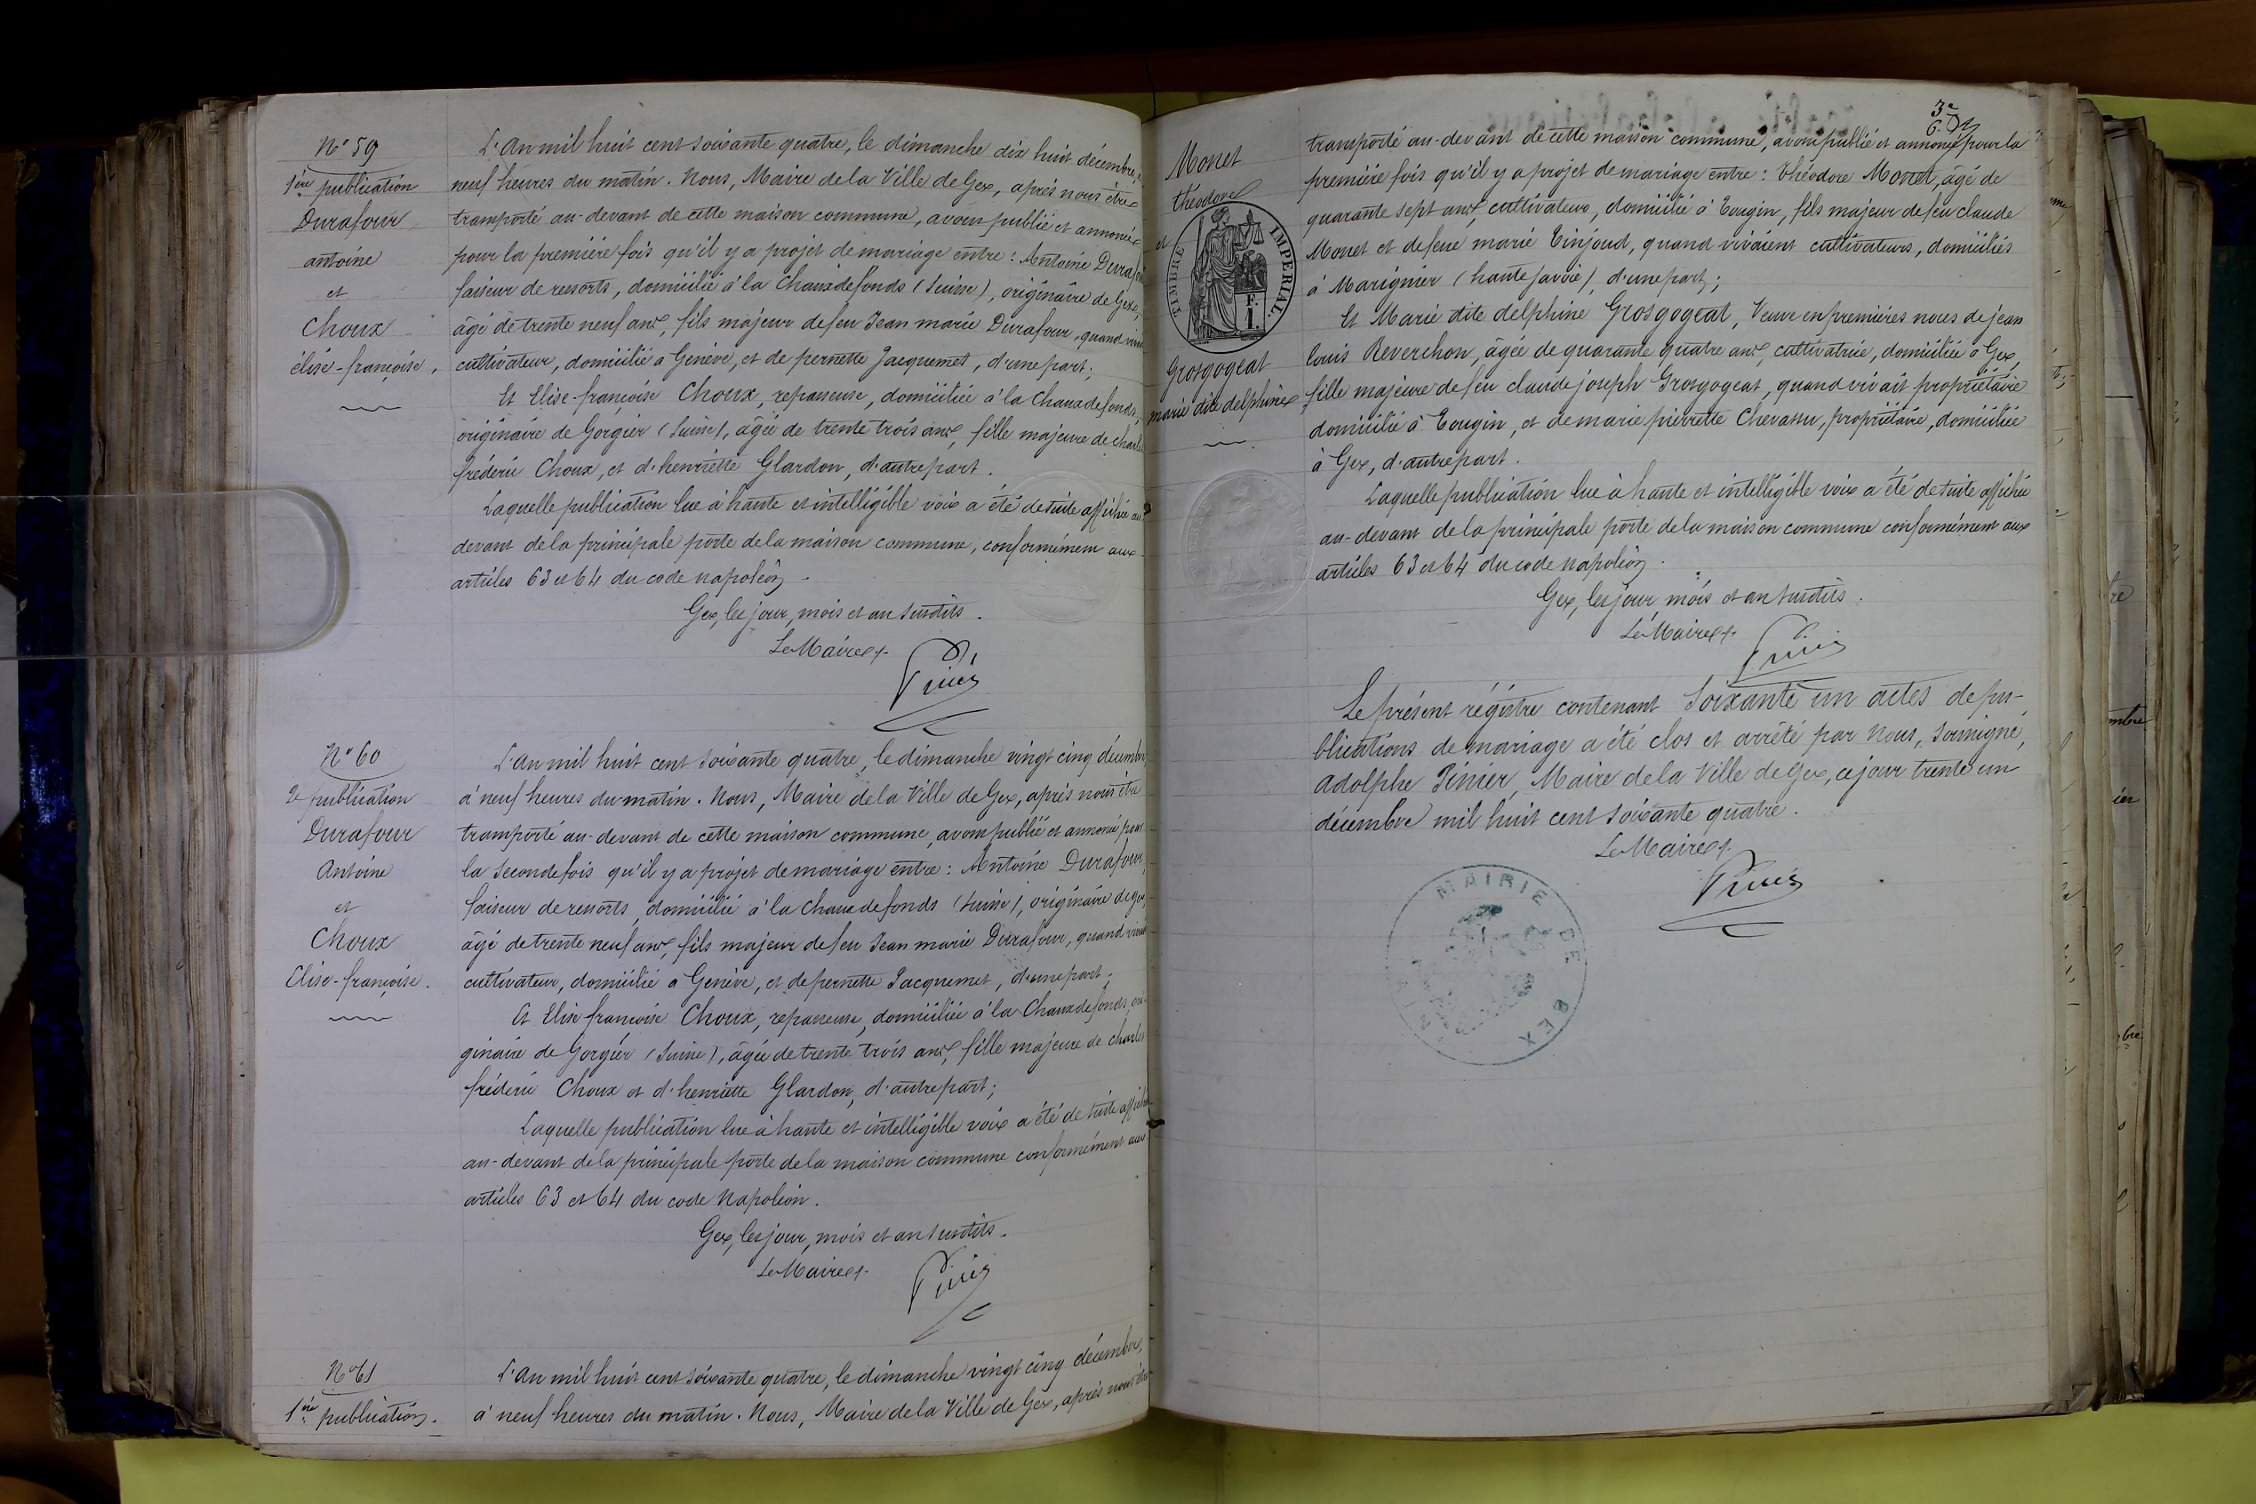 N° 59
1ère publication
Durafour
antoine
et
Choux
élise-françoise.
L'An mil huit cent soixante quatre, le dimanche dix huit décembre, à
neuf heures du matin. Nous, Maire de la Ville de Gex, après nous être
transporté au-devant de cette maison commune, avons publié et annoncé
pour la première fois qu'il y a projet de mariage entre : Antoine Durafour
faiseur de ressorts, domicilié à la Chaux de fonds (Suisse), originaire de Gex,
âgé de trente neuf ans, fils majeur de feu Jean marie Durafour, quand vivait
cultivateur, domicilié à Genève, et de pernette Jacquemet, d'une part ;
Et Elise-françoise Choux, repasseuse, domiciliée à la Chaux de fonds,
originaire de Gorgier (Suisse), âgée de trente trois ans, fille majeure de charles
fréderic Choux, et d'henriette Glardon, d'autre part.
Laquelle publication lue à haute et intelligible voix a été de suite affichée au
devant de la principale porte de la maison commune, conformément aux
articles 63 et 64 du code napoléon.
Gex, les jour, mois et an susdits.
Le Maire
Pinier
N° 60
2e publication
Durafour
Antoine
et
Choux
Elise-françoise.
L'An mil huit cent soixante quatre, le dimanche vingt cinq décembre
à neuf heures du matin. Nous, Maire de la Ville de Gex, après nous être
transporté au-devant de cette maison commune, avons publié et annoncé pour
la seconde fois qu'il y a projet de mariage entre : Antoine Durafour,
faiseur de ressorts, domicilié à la Chaux de fonds (Suisse), originaire de gex,
âgé de trente neuf ans, fils majeur de feu Jean marie Durafour, quand vivait
cultivateur, domicilié à Genève, et de pernette Jacquemet, d'une part ;
Et Elise françoise Choux, repasseuse, domiciliée à la Chaux de fonds, ori-
ginaire de Gorgier (Suisse), âgée de trente trois ans, fille majeure de charles
fréderic Choux et d'henriette Glardon, d'autre part ;
Laquelle publication lue à haute et intelligible voix a été de suite affichée
au-devant de la principale porte de la maison commune conformément aux
articles 63 et 64 du code Napoléon.
Gex, les jour, mois et an susdits.
Le Maire
Pinier
N° 61
1ère publication.
L'An mil huit cent soixante quatre, le dimanche vingt cinq décembre,
à neuf heures du matin. Nous, Maire de la Ville de Gex, après nous être
3e
Monet
théodore
et
TIMBRE IMPERIAL.
F.
I.
Grosgogeat
marie dite delphine
transporté au-devant de cette maison commune, avons publié et annoncé pour la
première fois qu'il y a projet de mariage entre : Théodore Monet, âgé de
quarante sept ans, cultivateur, domicilié à Tougin, fils majeur de feu claude
Monet et de feue marie Tinjoud, quand vivaient cultivateurs, domiciliés
à Marignier (haute savoie), d'une part ;
Et Marie dite delphine Grosgogeat, Veuve en premières noces de jean
louis Reverchon, âgée de quarante quatre ans, cultivatrice, domiciliée à Gex,
fille majeure de feu claude joseph Grosgogeat, quand vivait propriétaire
domicilié à Tougin, et de marie pierrette Chevassu, propriétaire, domiciliée
à Gex, d'autre part.
Laquelle publication lue à haute et intelligible voix a été de suite affichée
au-devant de la principale porte de la maison commune conformément aux
articles 63 et 64 du code napoléon.
Gex, les jour, mois et an susdits.
Le Maire
Pinier
Le présent régistre contenant soixante un actes de pu-
blications de mariage a été clos et arrêté par Nous, soussigné,
adolphe Pinier, Maire de la Ville de Gex, ce jour trente un
décembre mil huit cent soixante quatre.
Le Maire
Pinier
MAIRIE DE GEX